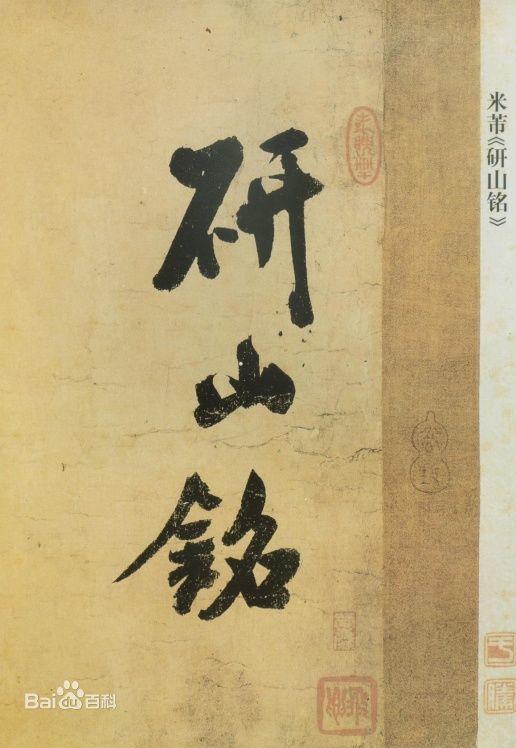 米芾《研山铭》
研山銘
Bai百科